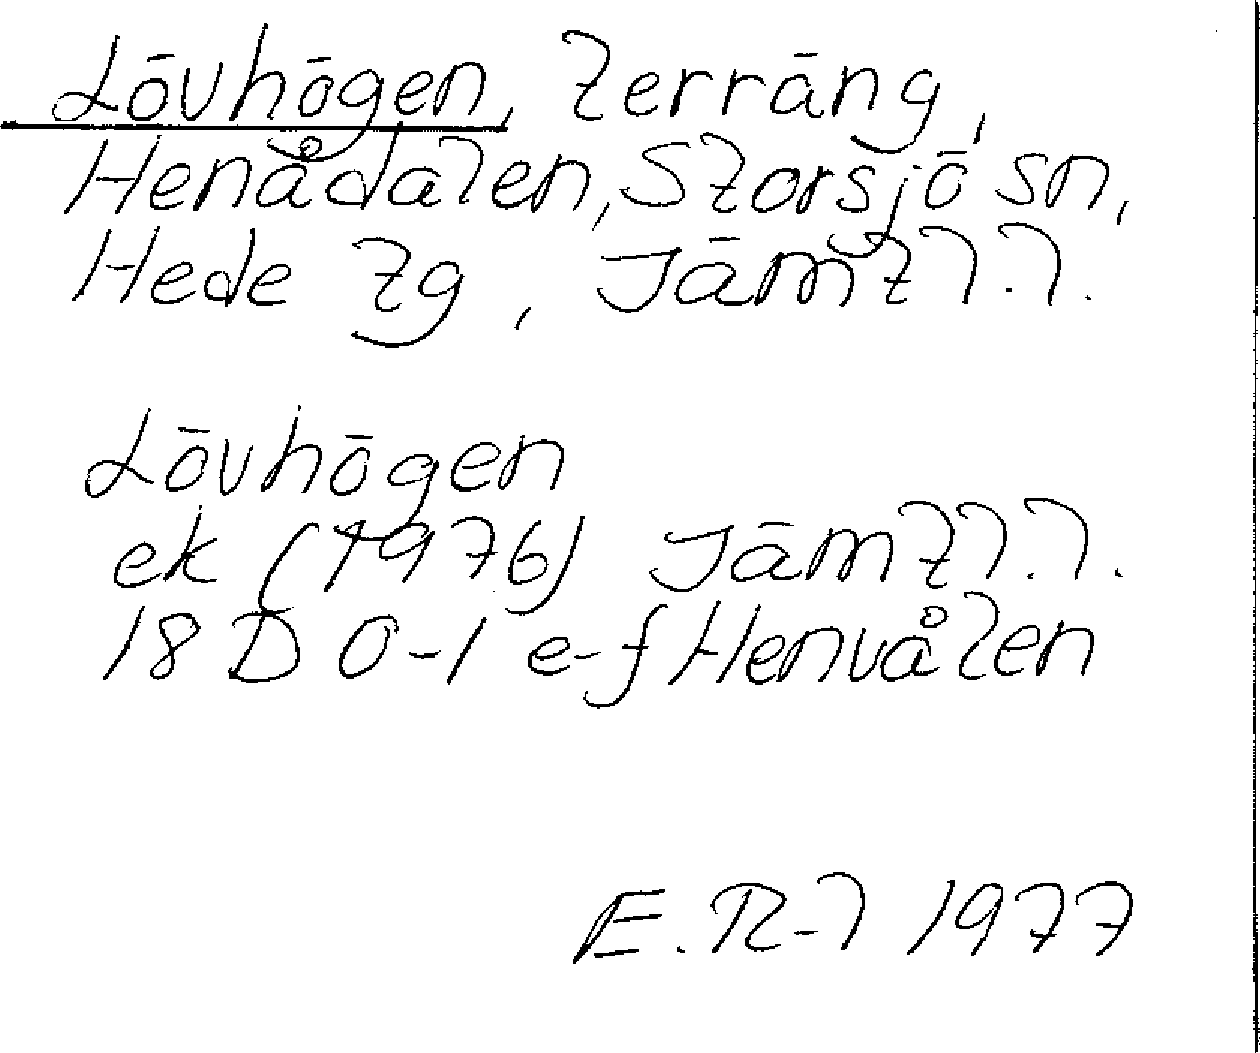 Lövhögen, terräng,
Henådalen, Storsjö sn,
Hede tg, Jämtl.l.
Lövhögen
ek (1976) Jämtl.l.
18D 0-1 e-f Henvålen
E. R-l 1977